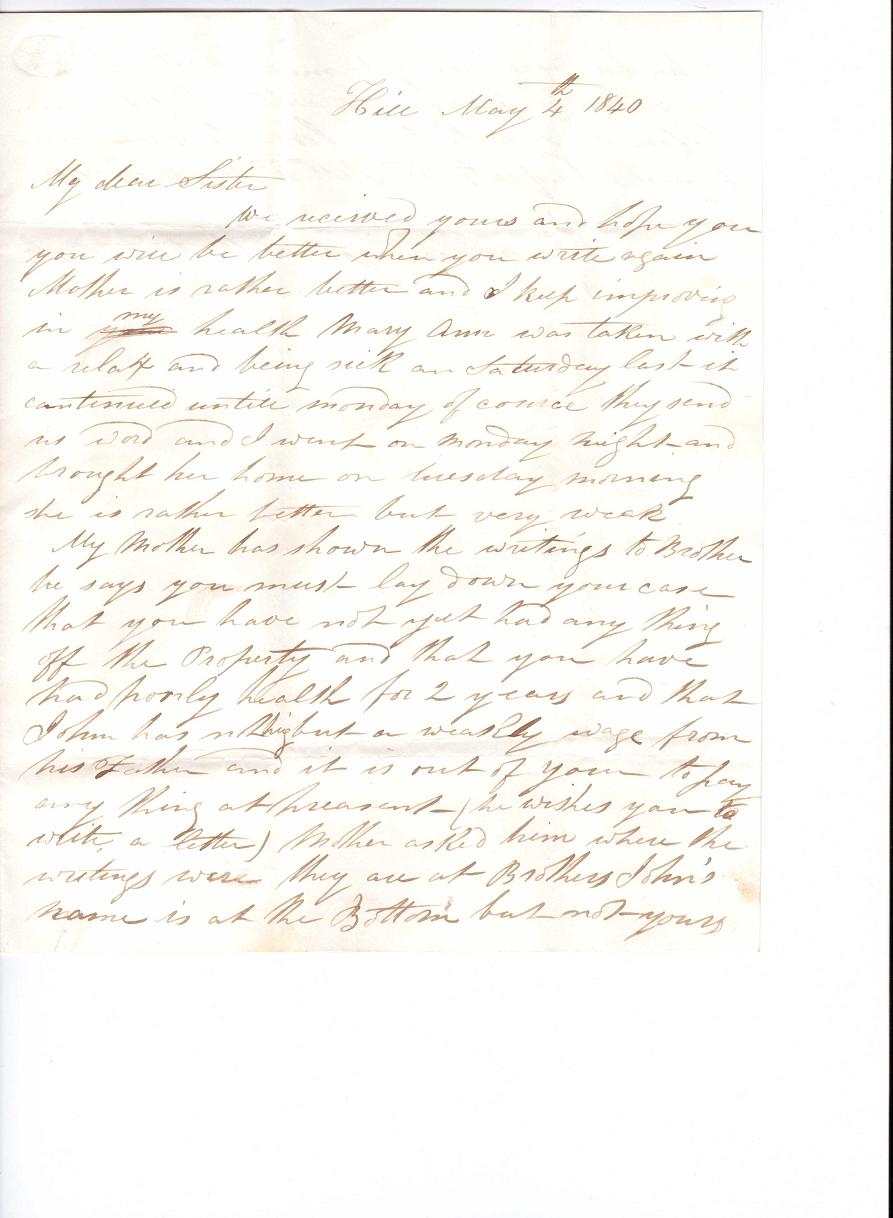 Hill May 4th 1840
My dear Sister
We received yours and hope you
you will be better when you write again
Mother is rather better and I keep improving
in my health Mary Ann was taken with
a relax and being sick on Saturday last it
continued untill monday of cource they send
us word and I went on monday night and
brought her home on tuesday morning
she is rather better but very weak
My Mother has shown the writings to Brother
he says you must lay down your case
that you have not yet had any thing
off the Property and that you have
had poorly health for 2 years and that
John has nthig but a weakly wage from
his Father and it is out of your to pay
any thing at preasent (he wishes you to
write a letter) Mother asked him where the
writings were they are at Brothers John's
name is at the Bottom but not yours